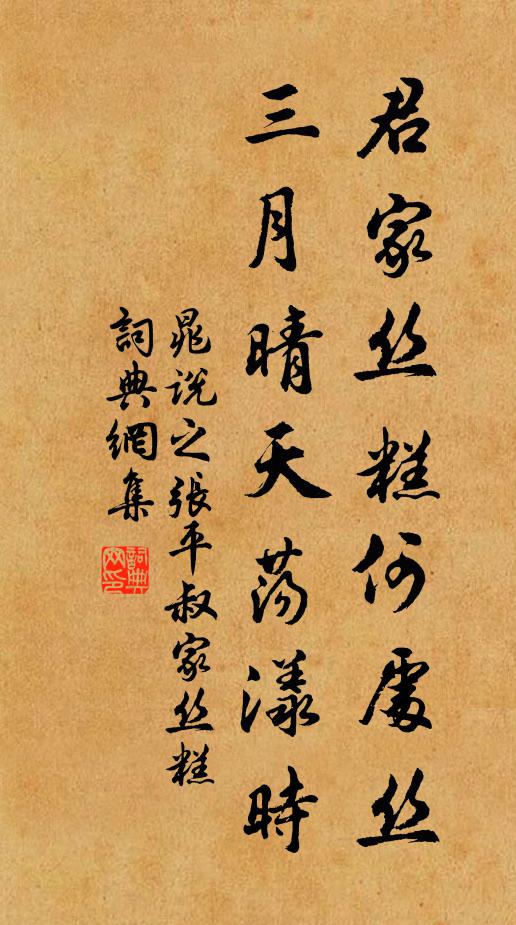 君家丝糕何處丝
三月晴天荡漾時
晁说之张平叔家丝糕
詞典網集
詞典網印